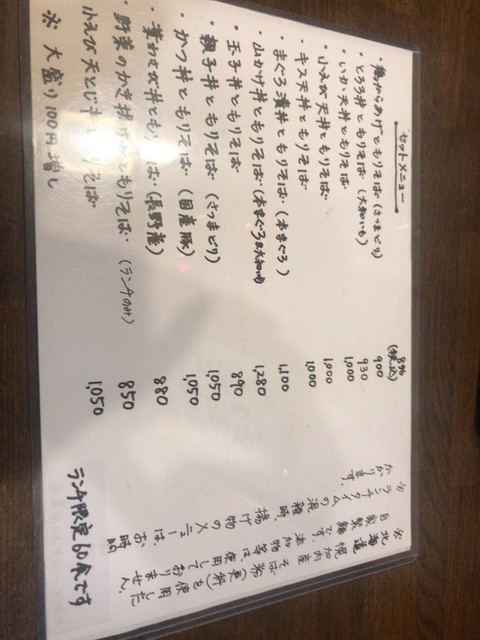 セットメニュー
(税込)
・鶏からあげともりそば(さつまどり) 900
・とろろ丼ともりそば(大和いも) 930
・いか天丼ともりそば 1,000
・小えび天丼ともりそば 1,000
・キス天丼ともりそば 1,000
・まぐろ漬丼ともりそば(本まぐろ) 1,100
・山かけ丼ともりそば(本まぐろ&大和いも) 1,280
・玉子丼ともりそば 890
・親子丼ともりそば(さつまどり) 1,050
・かつ丼ともりそば(国産豚) 1,050
・葉わさび丼ともりそば(長野産) 880
・野菜のかき揚げ丼ともりそば(ランチのみ) 850
小えび天とじ丼ともりそば 1,050
※大盛り100円増し
※北海道幌加内産そば粉(更科)を使用した
自家製麺です。添加物等は、使用しておりません。
※ランチタイムの混雑時、揚げ物のメニューは、お時間
かかります。
ランチ限定60食です